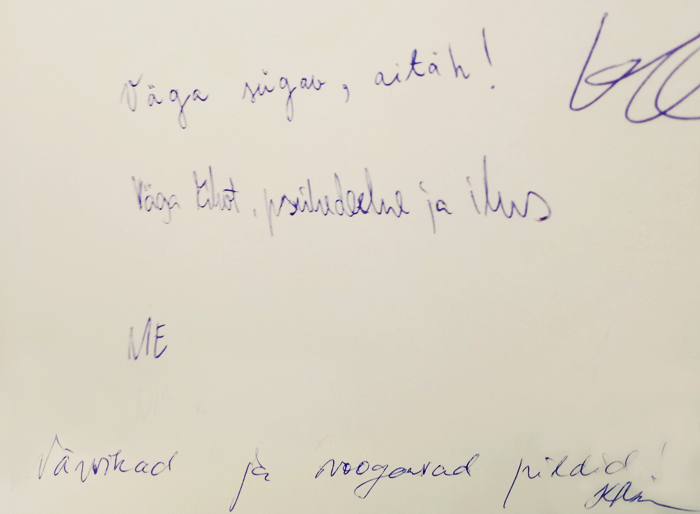 Väga sügav, aitäh!
Väga lihot, psühedeelne ja ilus
ME
Värvikad ja voogavad pildid!